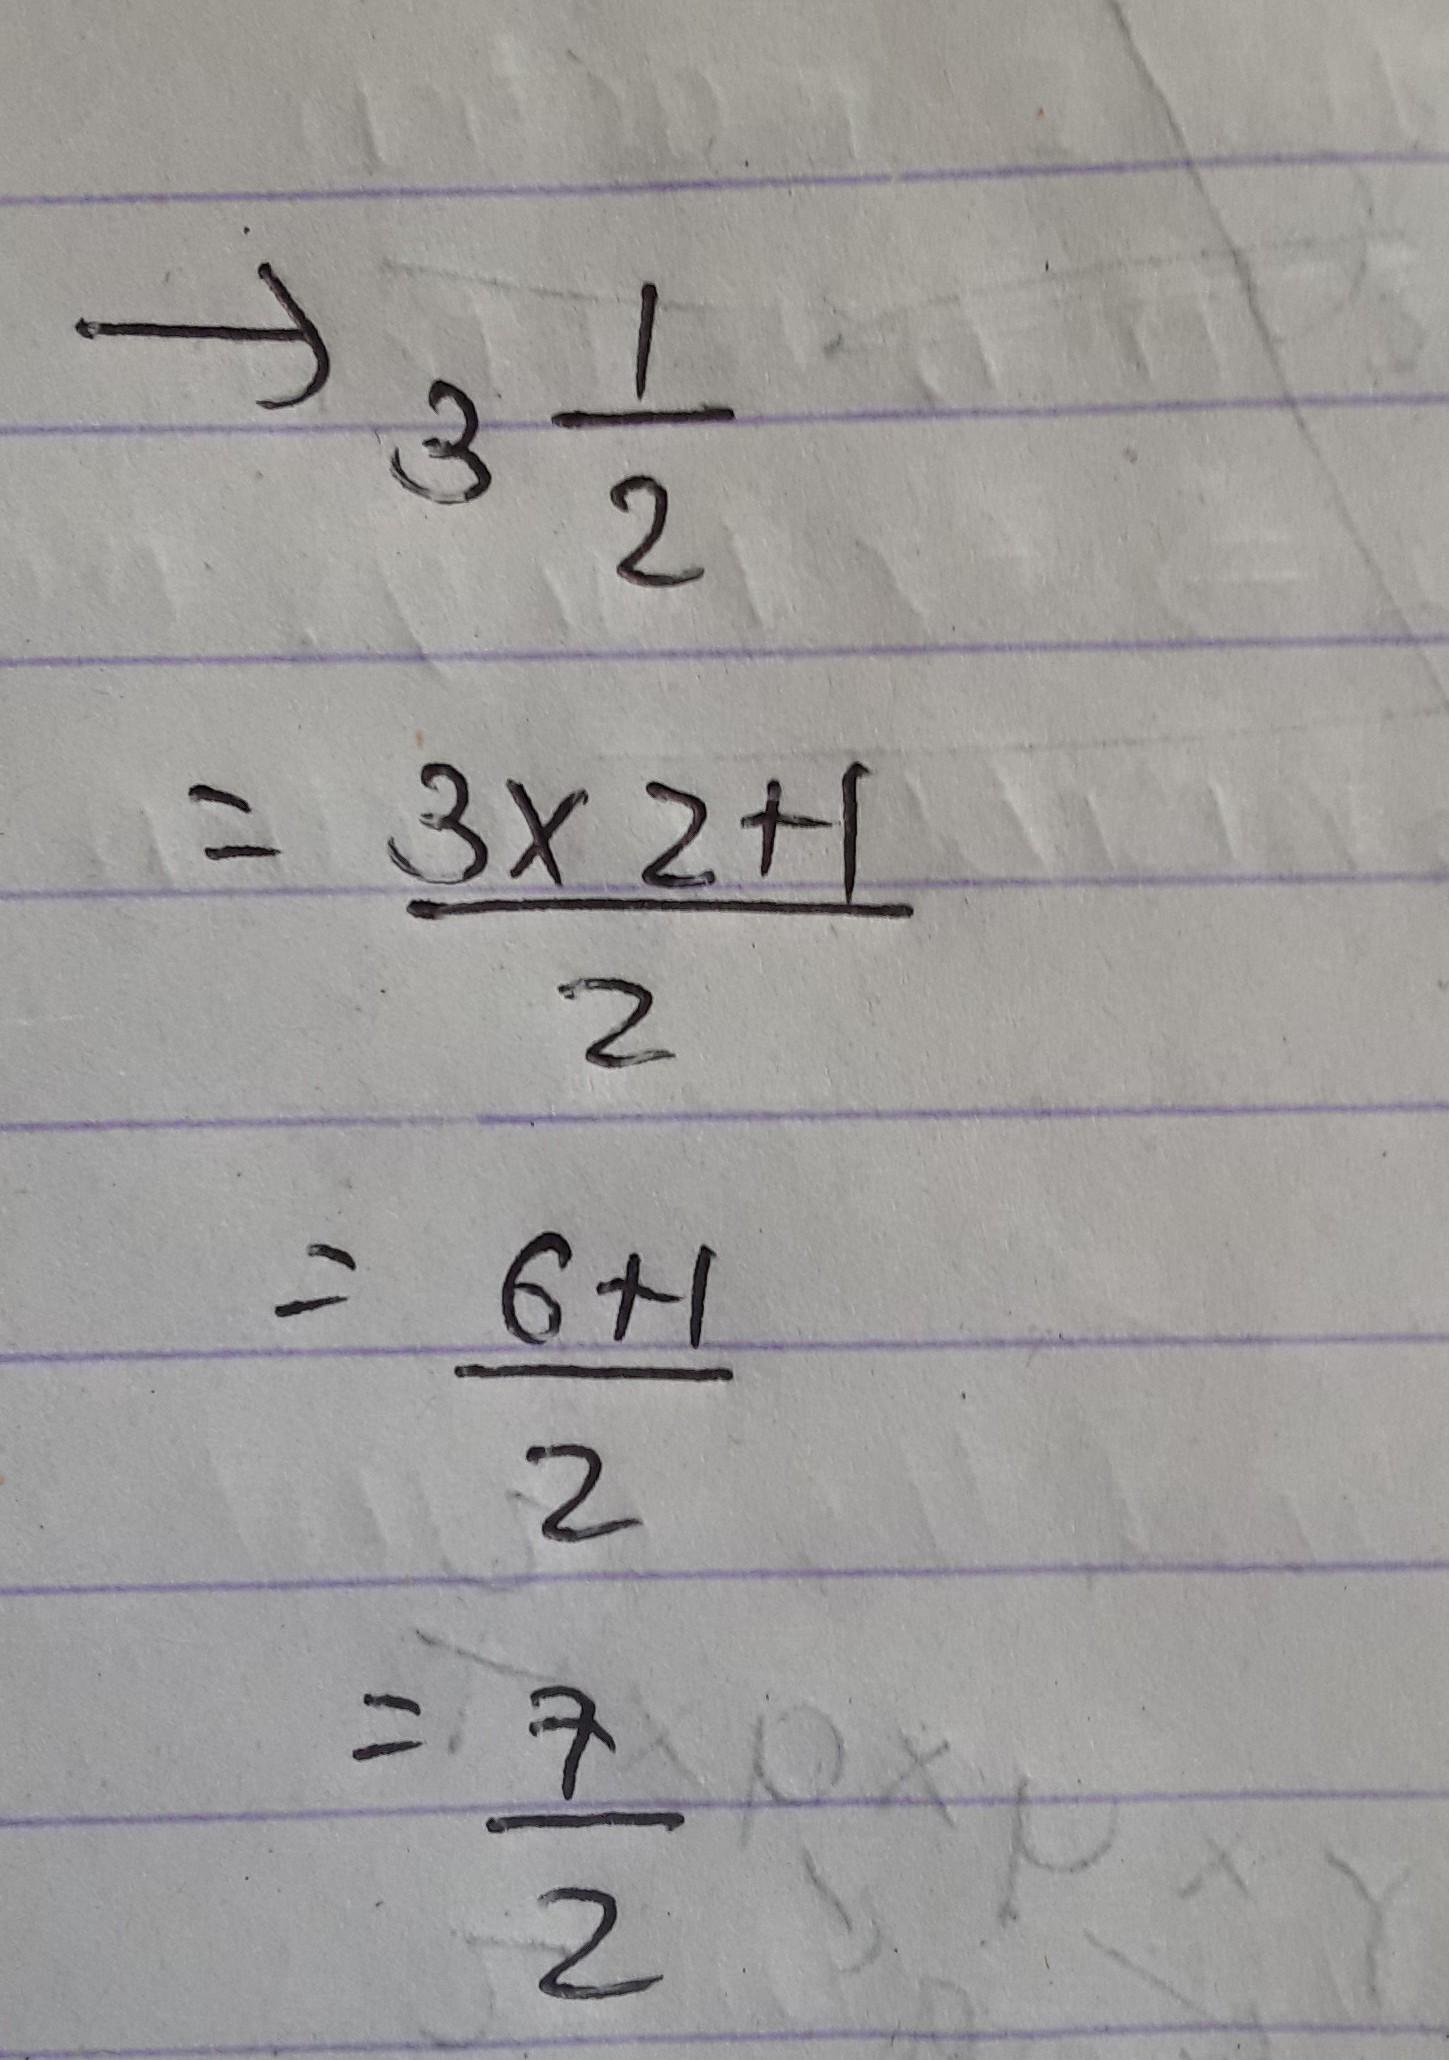 → 3 1/2
= (3x2+1)/2
= (6+1)/2
= 7/2